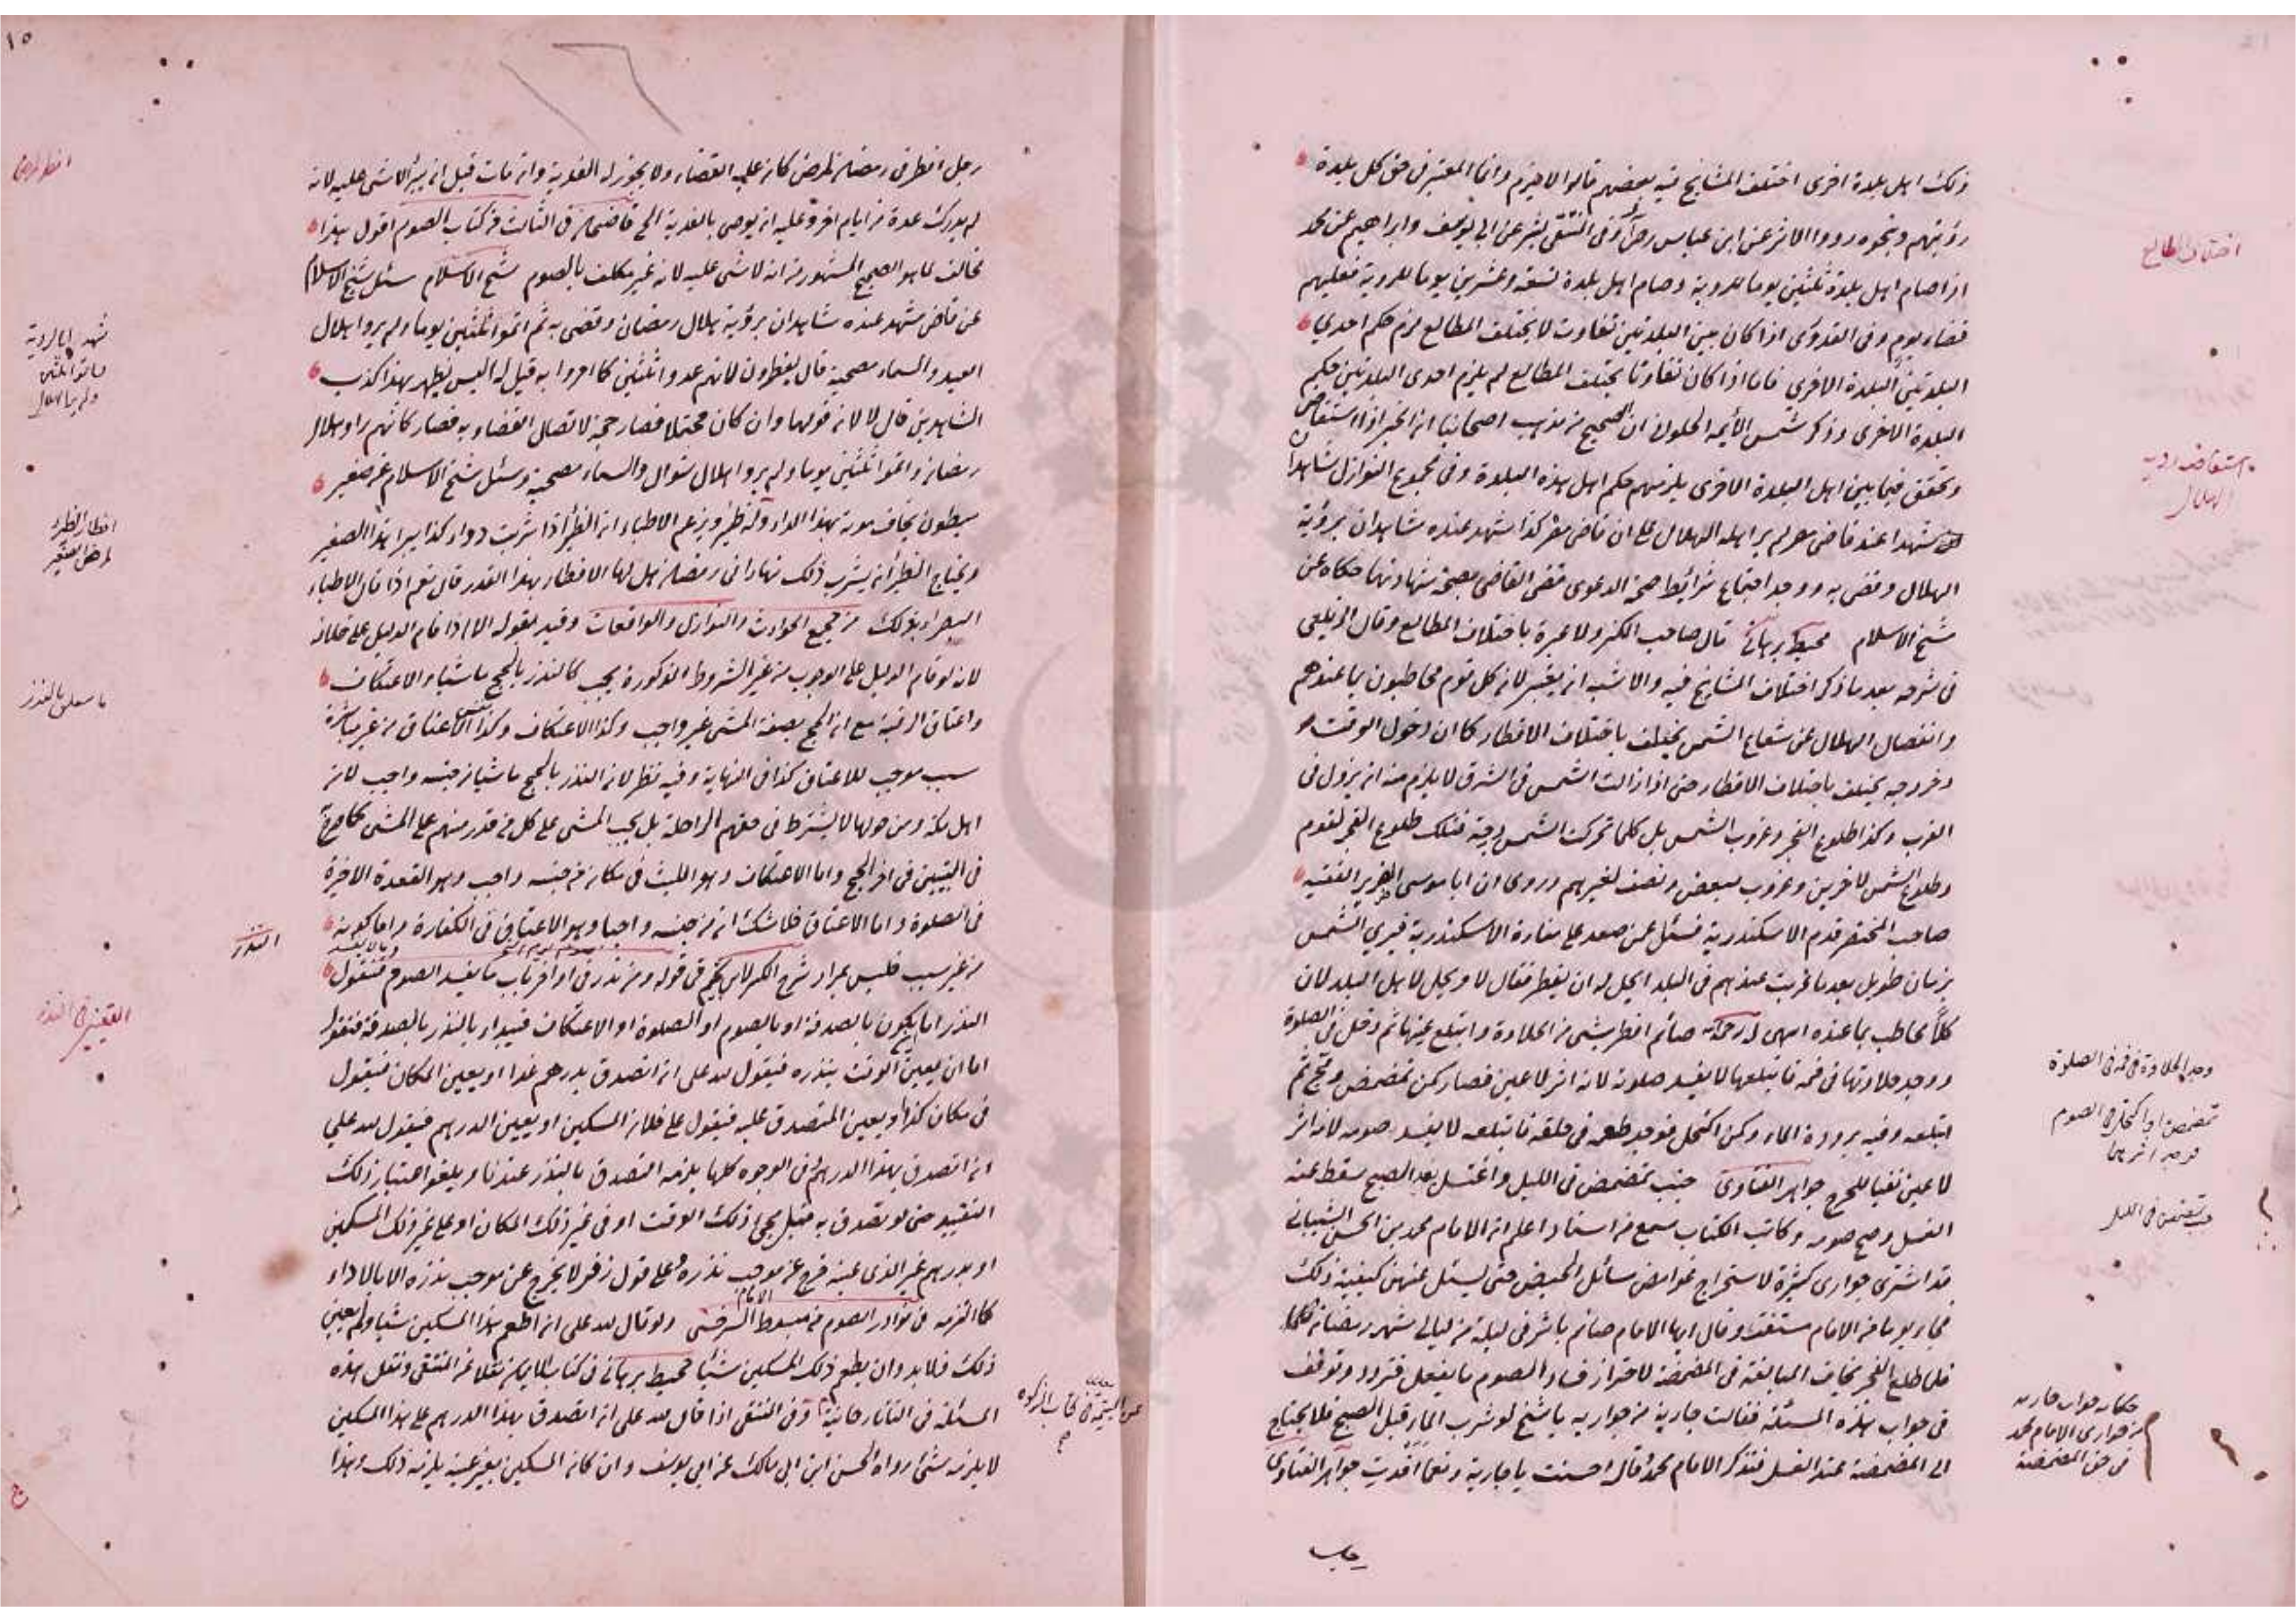 ذلك اهل بلدة اخرى اختلف المشايخ فيه بعضهم قالوا لا يلزم وانما المعتبر فى حق كل بلدة
رؤيتهم وبنحوه ورد الاثر عن ابن عباس رض وفى المنتقى بشر عن ابى يوسف وابراهيم عن محمد
اذا صام اهل بلدة ثلثين يوما للروية وصام اهل بلدة تسعة وعشرين يوما للروية فعليهم
قضاء يوم وفى القدورى اذا كان بين البلدتين تفاوت لا يختلف المطالع لزم حكم احدى
البلدتين البلدة الاخرى فاما اذا كان تفاوتا يختلف المطالع لم يلزم احدى البلدتين حكم
البلدة الاخرى وذكر شمس الائمة الحلوانى ان الصحيح من مذهب اصحابنا ان الخبر اذا استفاض
وتحقق فيما بين اهل البلدة الاخرى يلزمهم حكم اهل هذه البلدة وفى مجموع النوازل شاهدان
شهدا عند قاضى مصر لم ير اهله الهلال على ان قاضى مصر كذا شهد عنده شاهدان برؤية
الهلال وقضى به ووجد اجتماع شرائط صحة الدعوى قضى القاضى بصحة شهادتهما حكاه عن
شيخ الاسلام محيط برهانى قال صاحب الكنز ولا عبرة باختلاف المطالع وقال الزيلعى
فى شرحه بعد ما ذكر اختلاف المشايخ فيه والاشبه ان يعتبر لان كل قوم مخاطبون بما عندهم
وانفصال الهلال عن شعاع الشمس يختلف باختلاف الاقطار كما ان دخول الوقت
وخروجه يختلف باختلاف الاقطار حتى اذا زالت الشمس فى الشرق لا يلزم منه ان يزول فى
الغرب وكذا طلوع الفجر وغروب الشمس بل كلما تحركت الشمس درجة فتلك طلوع الفجر لقوم
وطلوع الشمس لاخرين وغروب لبعض ونصف لغيرهم وروى ان ابا موسى الضرير الفقيه
صاحب المختصر قدم الاسكندرية فسئل عمن صعد على منارة الاسكندرية فيرى الشمس
بزمان طويل بعد ما غربت عندهم فى البلد ايحل له ان يفطر فقال لا ويحل لاهل البلد لان
كلا مخاطب بما عنده انتهى صائم افطر بشى من الحلاوة وابتلع عينها ثم دخل فى الصلوة
ووجد حلاوتها فى فمه فابتلعها لا يفسد صلوته لانه اثر لا عين فصار كمن تمضمض ومج ثم
ابتلعه وفيه برودة الماء وكمن اكتحل فوجد طعمه فى حلقه فابتلعه لا يفسد صومه لانه اثر
لا عين نفيا للحرج جواهر الفتاوى جنب تمضمض فى الليل واغتسل بعد الصبح سقط عنه
الغسل وصح صومه وكاتب الكتاب سمع من استاد اعلم ان الامام محمد بن الحسن الشيبانى
قد اشترى جوارى كثيرة لاستخراج غوامض مسائل الحيض حتى يسئل عنهن كيفية ذلك
فجاء يوما من الامام مستفت وقال ايها الامام صائم باشر فى ليلة من ليالى شهر رمضان
فلما طلع الفجر يخاف المبالغة فى المضمضة لاحتراز فساد الصوم ما يفعل فتردد وتوقف
فى جواب هذه المسئلة فقالت جارية من جواريه يا شيخ لو شرب الماء قبل الصبح فلا يحتاج
الى المضمضة عند الغسل فتذكر الامام محمد وقال احسنت يا جارية ونعما افديت جواهر الفتاوى
اختلاف المطالع
استفاضة روية
الهلال
وجد الحلاوة فى فمه فى الصلوة
تمضمض او اكتحل فى الصوم
فوجد اثرها
جنب تمضمض فى الليل
حكاية جواب جارية
من جوارى الامام محمد
فى حق المضمضة
رجل افطر فى رمضان لمرض كان عليه القضاء ولا يجوز له الفدية وان مات قبل ان يبرأ لا شى عليه لانه
لم يدرك عدة من ايام اخر وعليه ان يوصى بالفدية الخ قاضيخان فى الثالث من كتاب الصوم اقول هذا
مخالف لما هو الصحيح المشهور من انه لا شى عليه لانه غير مكلف بالصوم شيخ الاسلام سئل شيخ الاسلام
عن قاض شهد عنده شاهدان برؤية هلال رمضان وقضى به ثم اتموا ثلثين يوما ولم يروا هلال
العيد والسماء مصحية قال يفطرون لانهم عدوا ثلثين كما امروا به قيل له اليس يظهر بهذا كذب
الشاهدين قال لا لان قولهما وان كان محتملا فصار حجة لاتصال القضاء به فصار كانهم راوا هلال
رمضان واتموا ثلثين يوما ولم يروا هلال شوال والسماء مصحية وسئل شيخ الاسلام عن صغير
مبطون يخاف موته بهذا الداء وله ظئر ويزعم الاطباء ان الظئر اذا شربت دواء كذا يبرا هذا الصغير
ويحتاج الظئر ان يشرب ذلك نهارا فى رمضان هل لها الافطار بهذا القدر قال نعم اذا قال الاطباء
البصراء بذلك من جميع الحوادث والنوازل والواقعات وقيد بقوله الا اذا قام الدليل على خلافه
لانه لو قام الدليل على الوجوب من غير الشروط المذكورة يجب كالنذر بالحج ماشيا والاعتكاف
واعتاق الرقبة مع ان الحج بصفة المشى غير واجب وكذا الاعتكاف وكذا نفس الاعتاق من غير مباشرة
سبب موجب للاعتاق كذا فى النهاية وفيه نظر لان النذر بالحج ماشيا من جنسه واجب لان
اهل مكة ومن حولها لا يشترط فى حقهم الراحلة بل يجب المشى على كل من قدر منهم على المشى كما صرح
فى التبيين فى اخر الحج واما الاعتكاف وهو اللبث فى مكان من جنسه واجب وهو القعدة الاخيرة
فى الصلوة واما الاعتاق فلا شك ان من جنسه واجبا وهو الاعتاق فى الكفارة واما كونه
من غير سبب فليس بمراد شرح الكنز لابن نجيم فى قوله ومن نذر فى اواخر باب ما يفسد الصوم فنقول
النذر اما يكون بالصدقة او بالصوم او الصلوة او الاعتكاف فنبدأ بالنذر بالصدقة فنقول
اما ان يعين الوقت بنذره فيقول لله على ان اتصدق بدرهم غدا او يعين المكان فيقول
فى مكان كذا او يعين المتصدق عليه فيقول على فلان المسكين او يعين الدرهم فيقول لله على
ان اتصدق بهذا الدرهم فى الوجوه كلها يلزمه التصدق بالنذر عندنا ويلغو اعتبار ذلك
التقييد حتى لو تصدق به قبل مجى ذلك الوقت او فى غير ذلك المكان او على غير ذلك المسكين
او بدرهم غير الذى عينه خرج عن موجب نذره وعلى قول زفر لا يخرج عن موجب نذره الا بالاداء
كما التزمه فى نوادر الصوم من مبسوط الامام السرخسى ولو قال لله على ان اطعم هذا المسكين شيئا ولم يعين
ذلك فلا بد وان يطعم ذلك المسكين شيئا محيط برهانى فى كتاب الايمان نقلا عن المنتقى ونقل هذه
المسئلة فى التاتارخانية وفى المنتقى اذا قال لله على ان اتصدق بهذا الدرهم على هذا المسكين
لا يلزمه شئ رواه الحسن ابن ابى مالك عن ابى يوسف وان كان المسكين بغير عينه يلزمه ذلك وهذا
١٥
شهدا بالروية
فاتموا ثلثين
ولم يرا هلال
افطار الظئر
لمرض الصغير
ما يتعلق بالنذر
النذر
التعيين فى النذر